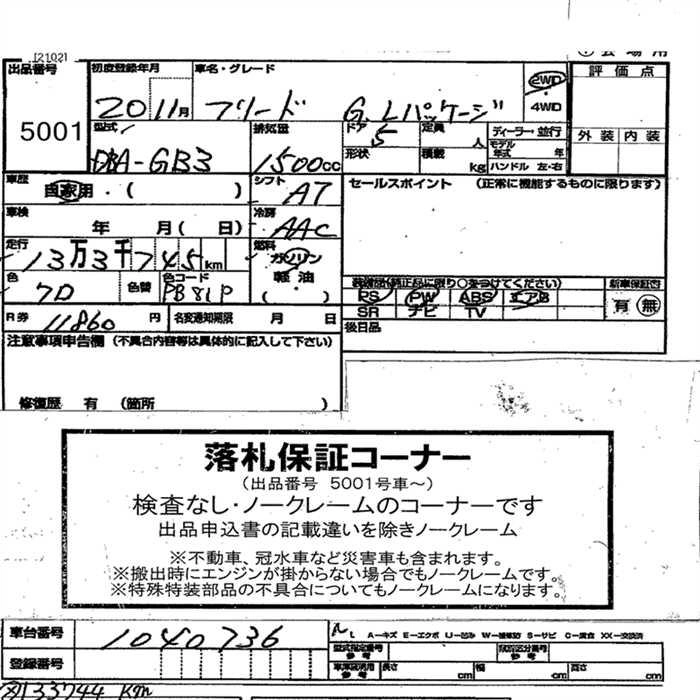 [2102]
出品番号 初度登録年月 車名・グレード 2WD 評価点
5001 20 11月 フリード G.Lパッケージ ・4WD
型式 排気量 ドア 定員 ディーラー・並行 外装 内装
DBA-GB3 1500cc 5 人 モデル年式 年
形状 積載 kg ハンドル 左・右
車歴 自家用・( ) シフト AT セールスポイント (正常に機能するものに限ります)
車検 年 月( 日) 冷房 AAC
走行 13万3千745km 燃料 ガソリン
色 色替 色コード PB81P 軽油 ・( )
装備品(純正品に限り○をつけてください) 新車保証書
PS PW ABS エアB 有 無
SR ナビ TV
R券 11860円 名変通知期限 月 日 後日品
注意事項申告欄 (不具合内容等は具体的に記入して下さい)
修復歴 有 (箇所 )
落札保証コーナー
(出品番号 5001号車~)
検査なし・ノークレームのコーナーです
出品申込書の記載違いを除きノークレーム
※不動車、冠水車など災害車も含まれます。
※搬出時にエンジンが掛からない場合でもノークレームです。
※特殊特装部品の不具合についてもノークレームになります。
車台番号 1040736 A－キズ E－エクボ U－凹み W－補修跡 S－サビ C－腐食 XX－交換済
登録番号 型式指定番号 参考 類別区分番号 参考
車庫証明用 参考 長さ cm 幅 cm 高さ cm
133744 Km